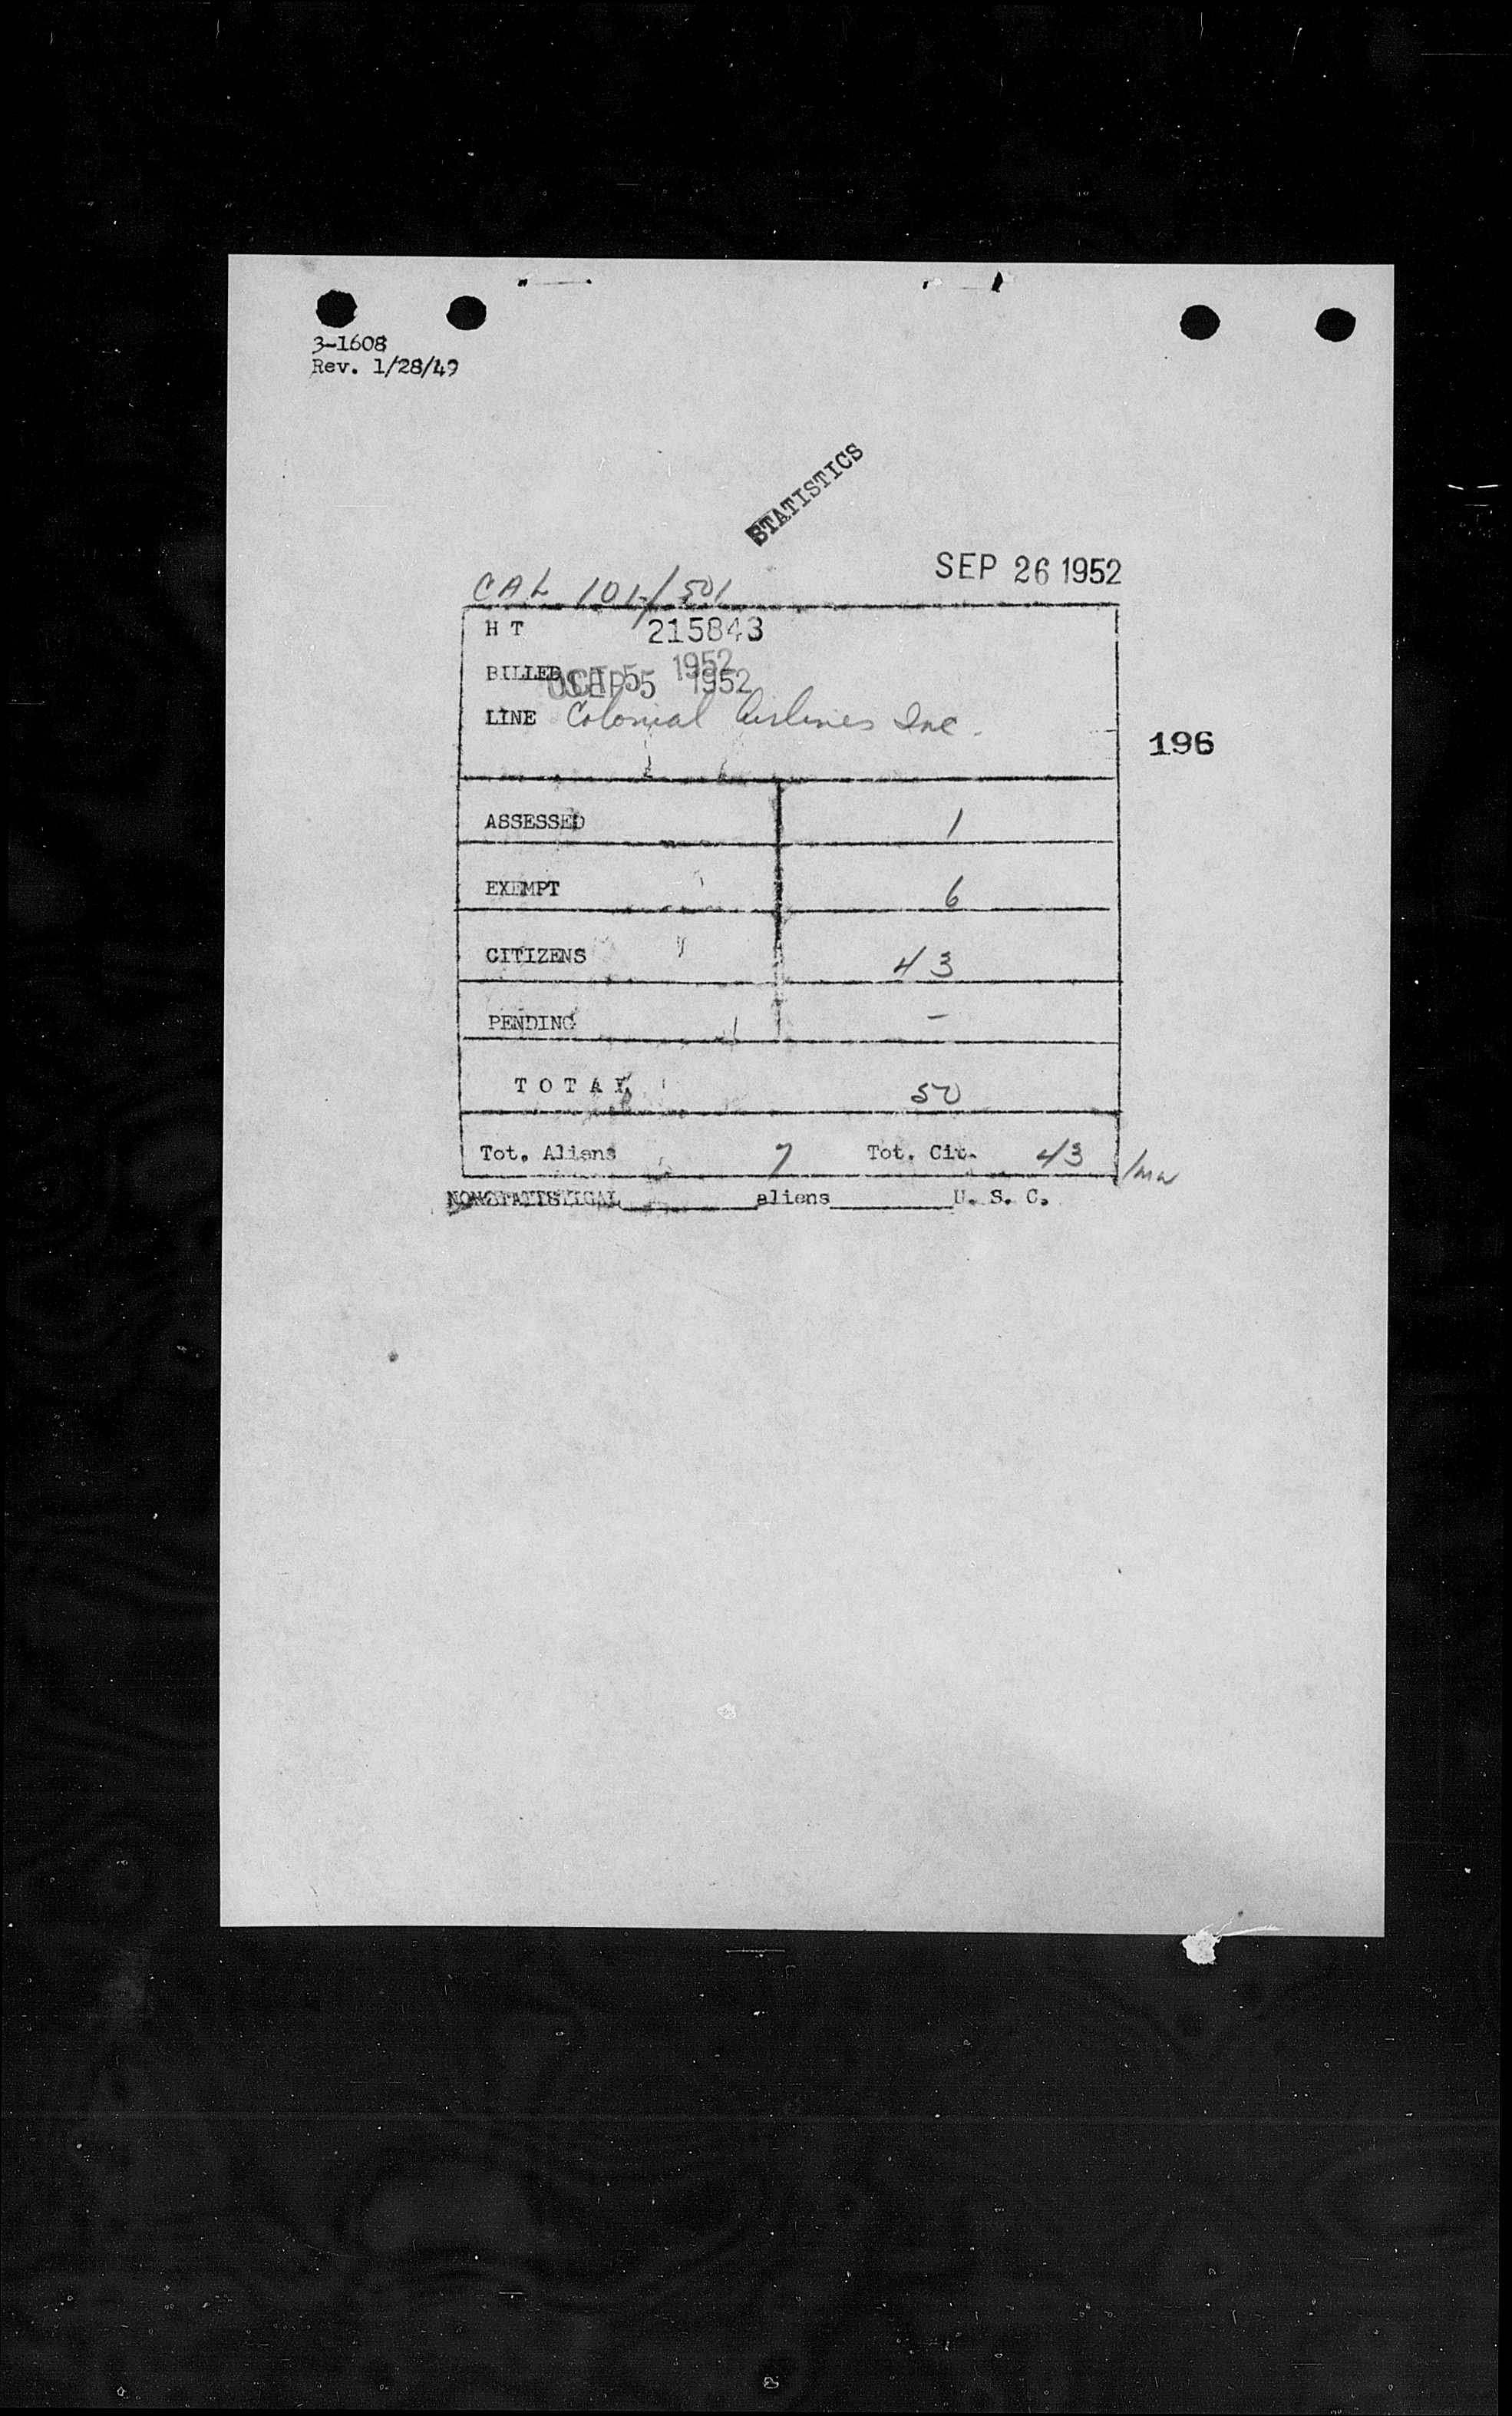 3-1608
Rev. 1/28/49
STATISTICS
SEP 26 1952
CAL 101/501
H T 215843
BILLED OCT 5 1952
SEP 5 1952
LINE Colonial Airlines Inc.
196
ASSESSED 1
EXEMPT 6
CITIZENS 43
PENDING -
T O T A L 50
Tot. Aliens 7 Tot. Cit. 43
NONSTATISTICAL aliens U. S. C.